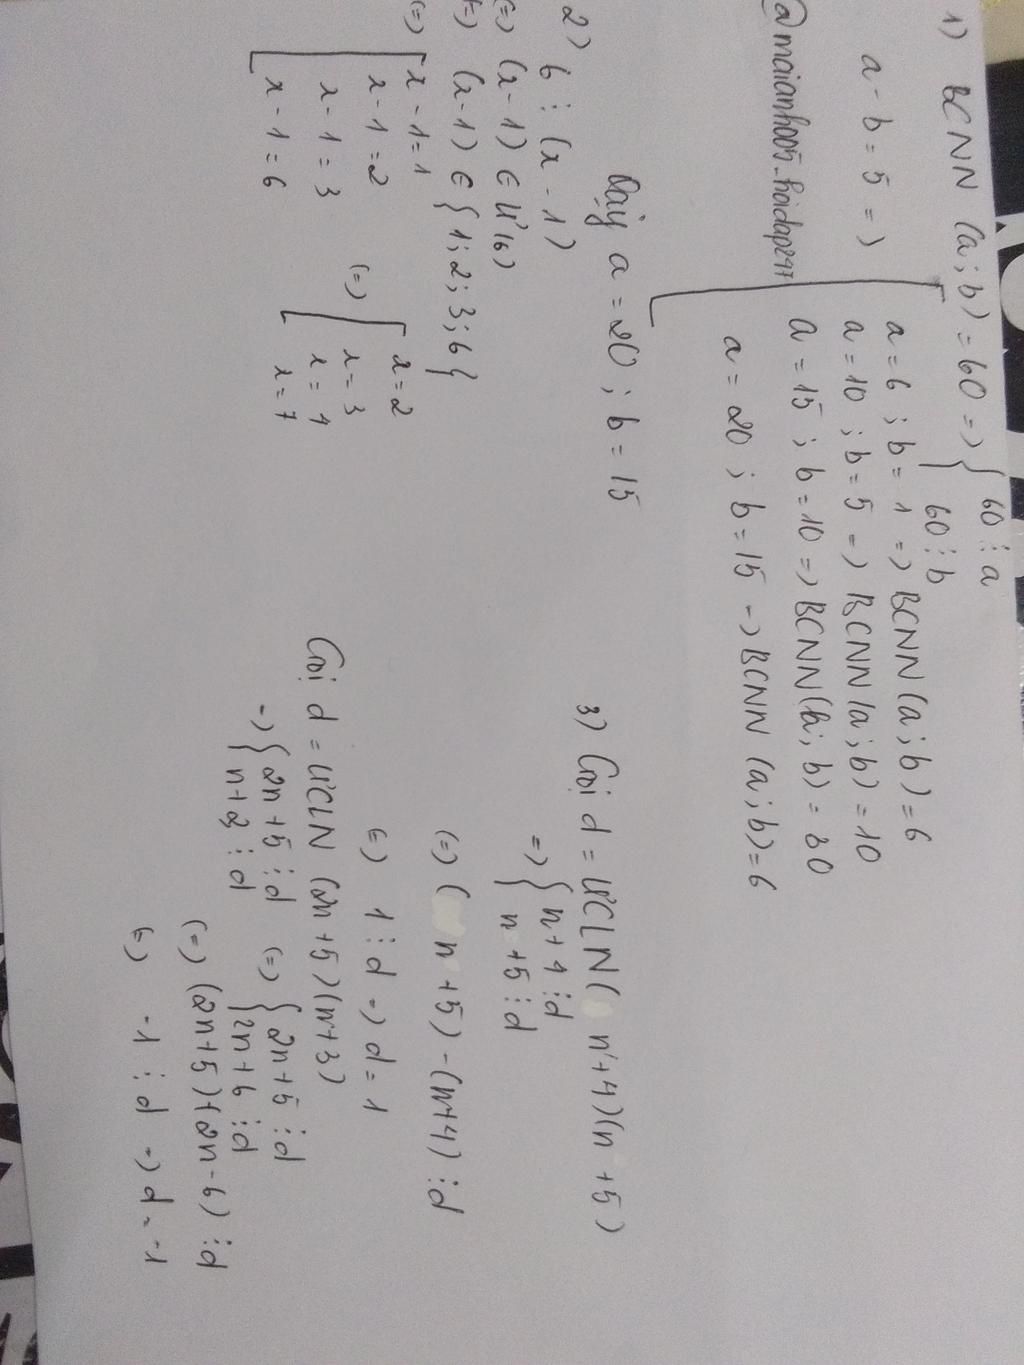 1) BCNN (a; b) = 60 => { 60 ⋮ a
60 ⋮ b
a - b = 5 =>
a = 6 ; b = 1 => BCNN (a; b) = 6
a = 10 ; b = 5 => BCNN (a; b) = 10
a = 15 ; b = 10 => BCNN (a; b) = 30
a = 20 ; b = 15 -> BCNN (a; b) = 6
@maianh005_hoidap247
Vậy a = 20 ; b = 15
2) 6 ⋮ (x - 1)
(=) (x - 1) ∈ Ư(6)
(=) (x - 1) ∈ { 1; 2; 3; 6 }
(=) [ x - 1 = 1
x - 1 = 2
x - 1 = 3
x - 1 = 6
(=) [ x = 2
x = 3
x = 4
x = 7
3) Gọi d = ƯCLN ( n + 4)(n + 5)
=> { n + 4 ⋮ d
n + 5 ⋮ d
(=) ( n + 5) - (n + 4) ⋮ d
(=) 1 ⋮ d -> d = 1
Gọi d = ƯCLN (2n + 5)(n + 3)
-> { 2n + 5 ⋮ d (=) { 2n + 5 ⋮ d
⋮ d 2n + 6 ⋮ d
(=) (2n + 5) (2n - 6) ⋮ d
(=) -1 ⋮ d -> d = -1